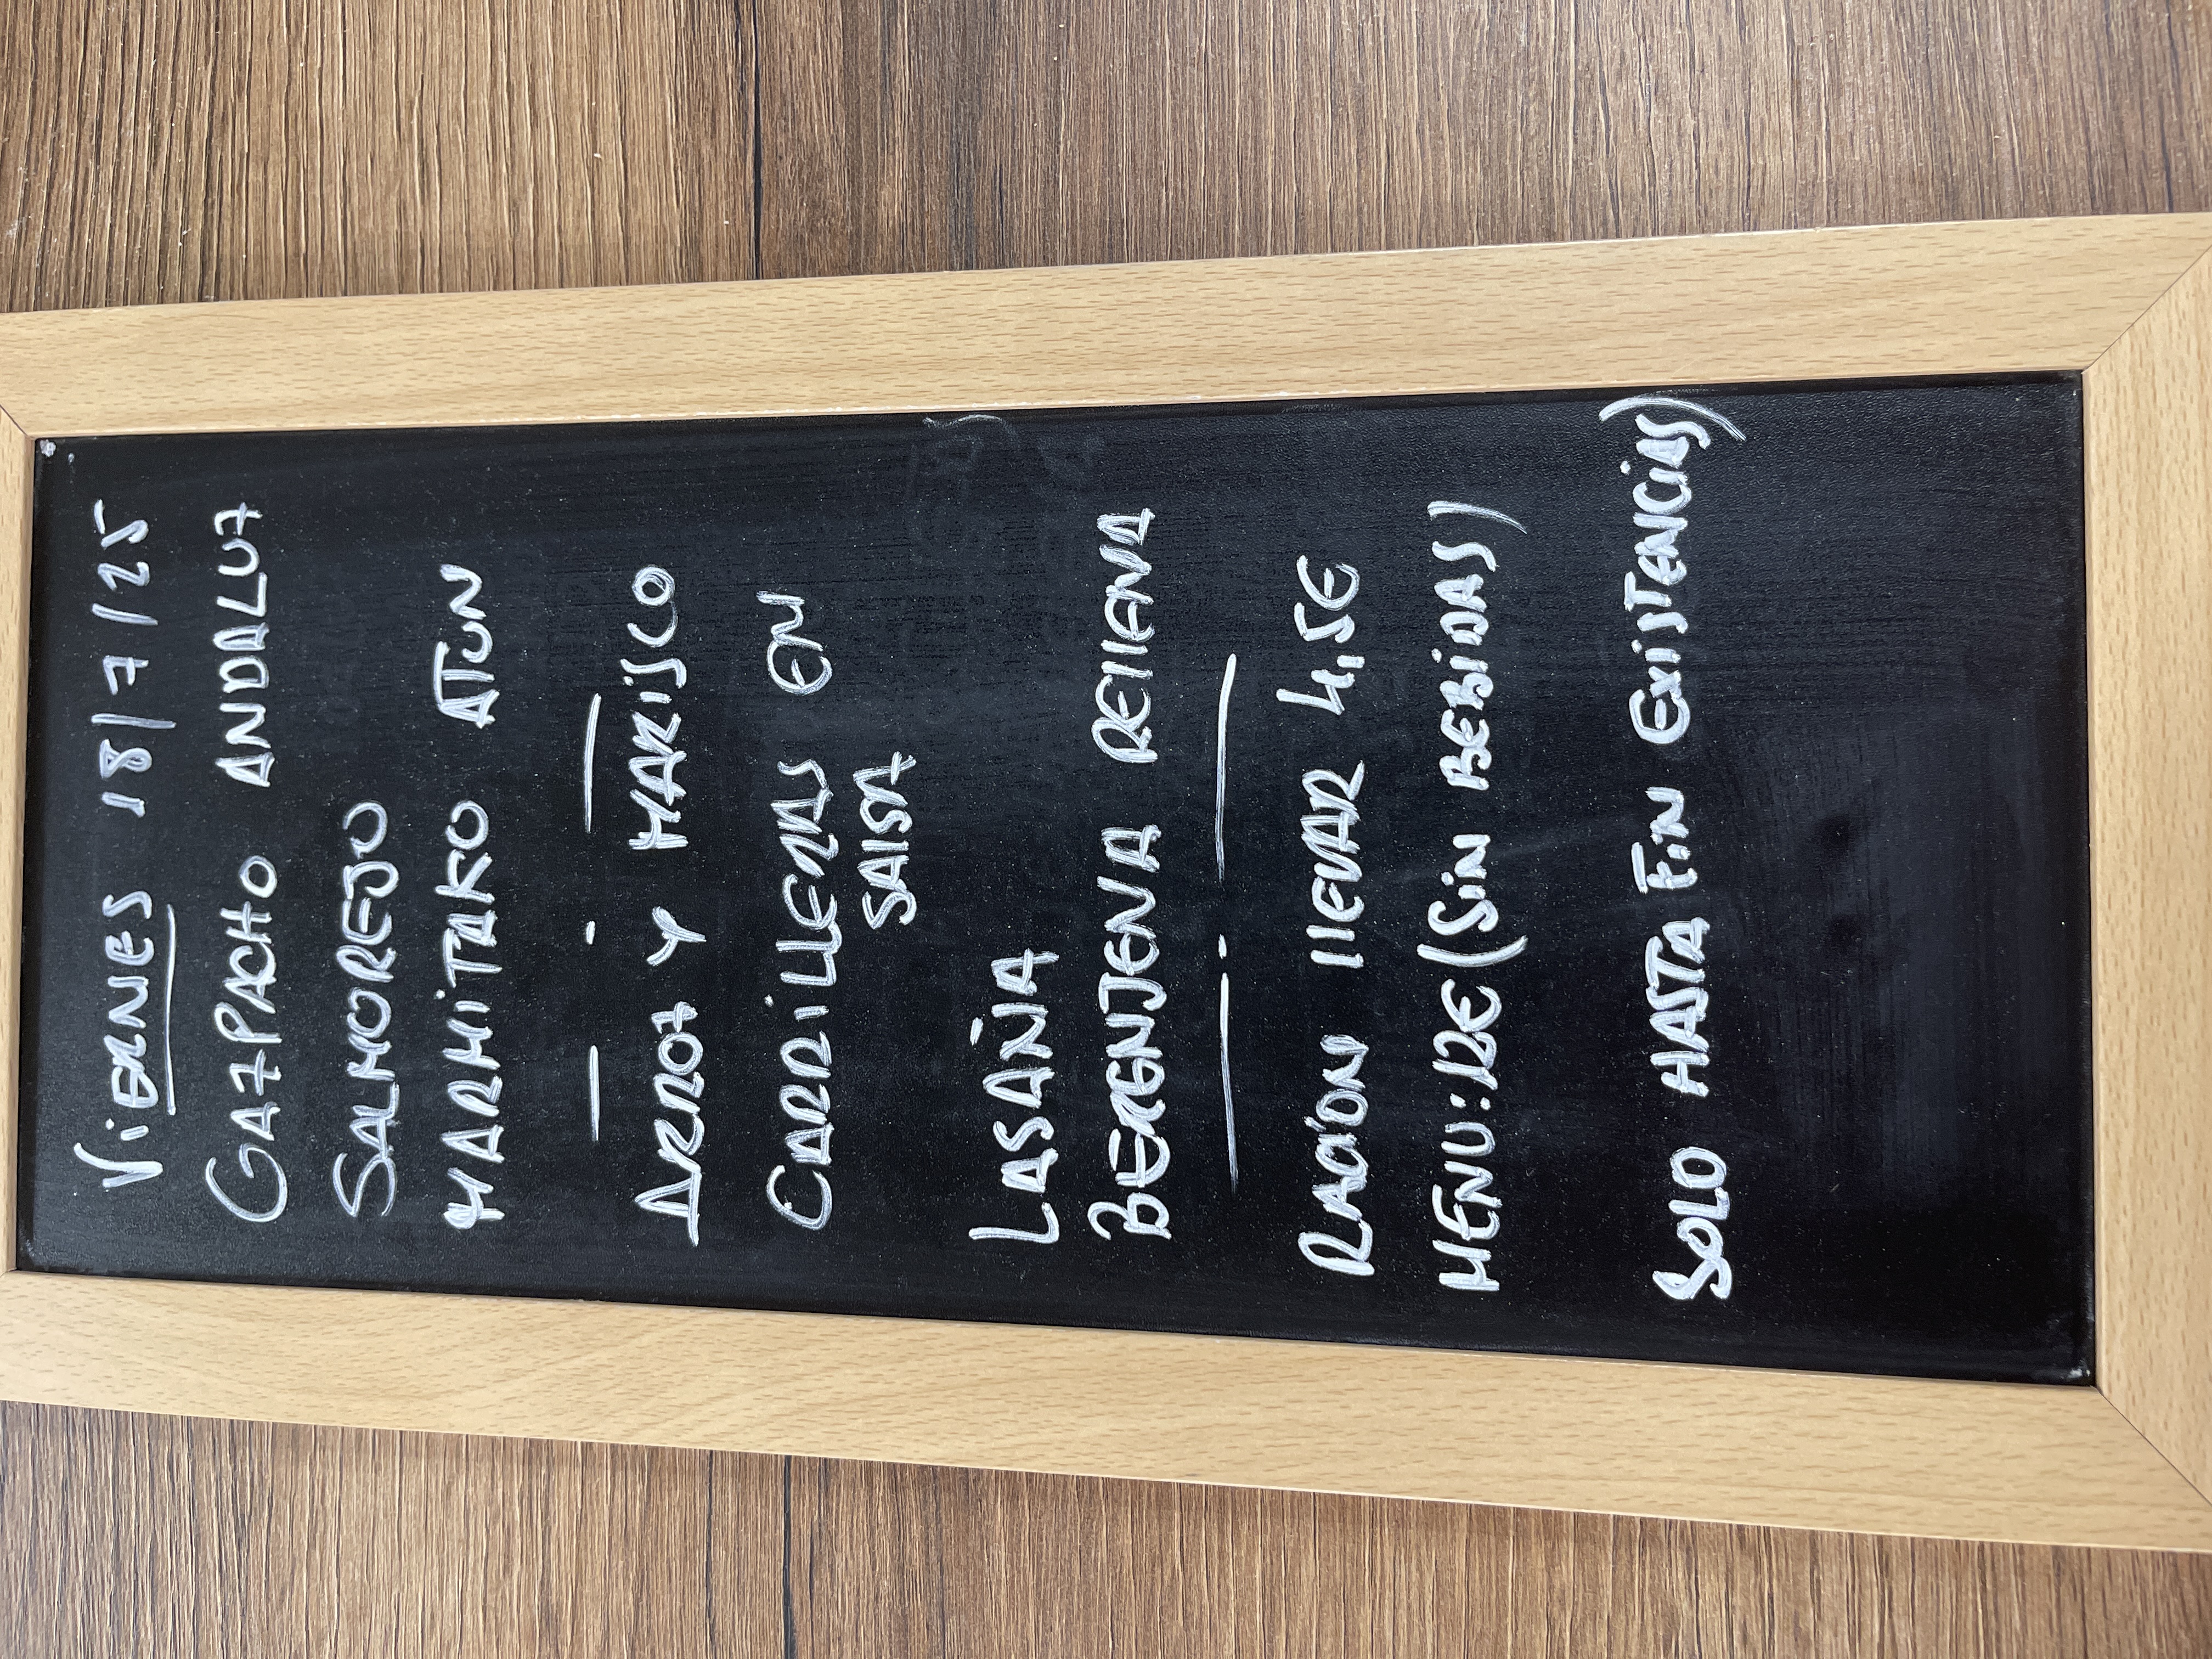 VIERNES 18/7/25
GAZPACHO ANDALUZ
SALMOREJO
MARMITAKO ATUN
— . —
ARROZ Y MARISCO
CARRILLERAS EN
SALSA
LASAÑA
BERENJENA RELLENA
— . —
RACIÓN LLEVAR 4,5€
MENU: 12€ (SIN BEBIDAS)
SOLO HASTA FIN EXISTENCIAS)